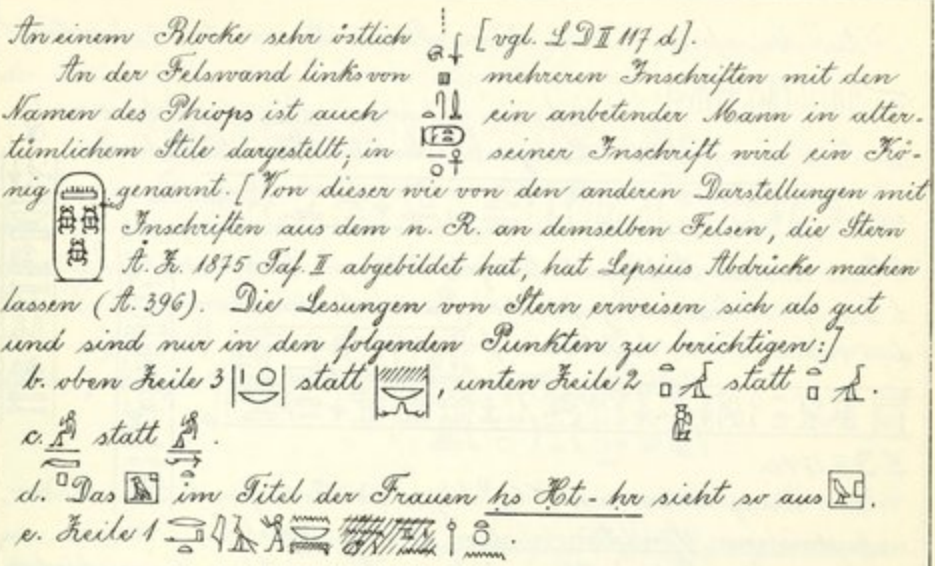 An einem Blocke sehr östlich [vgl. L D II 117 d].
An der Felswand links von mehreren Inschriften mit den
Namen des Phiops ist auch ein anbetender Mann in alter-
tümlichem Stile dargestellt, in seiner Inschrift wird ein Kö-
nig genannt. [Von dieser wie von den anderen Darstellungen mit
Inschriften aus dem n. R. an demselben Felsen, die Stern
Ä. Z. 1875 Taf. II abgebildet hat, hat Lepsius Abdrücke machen
lassen (A. 396). Die Lesungen von Stern erweisen sich als gut
und sind nur in den folgenden Punkten zu berichtigen:]
b. oben Zeile 3 statt , unten Zeile 2 statt .
c. statt .
d. Das im Titel der Frauen ḥs Ḥt-ḥr sieht so aus .
e. Zeile 1 .